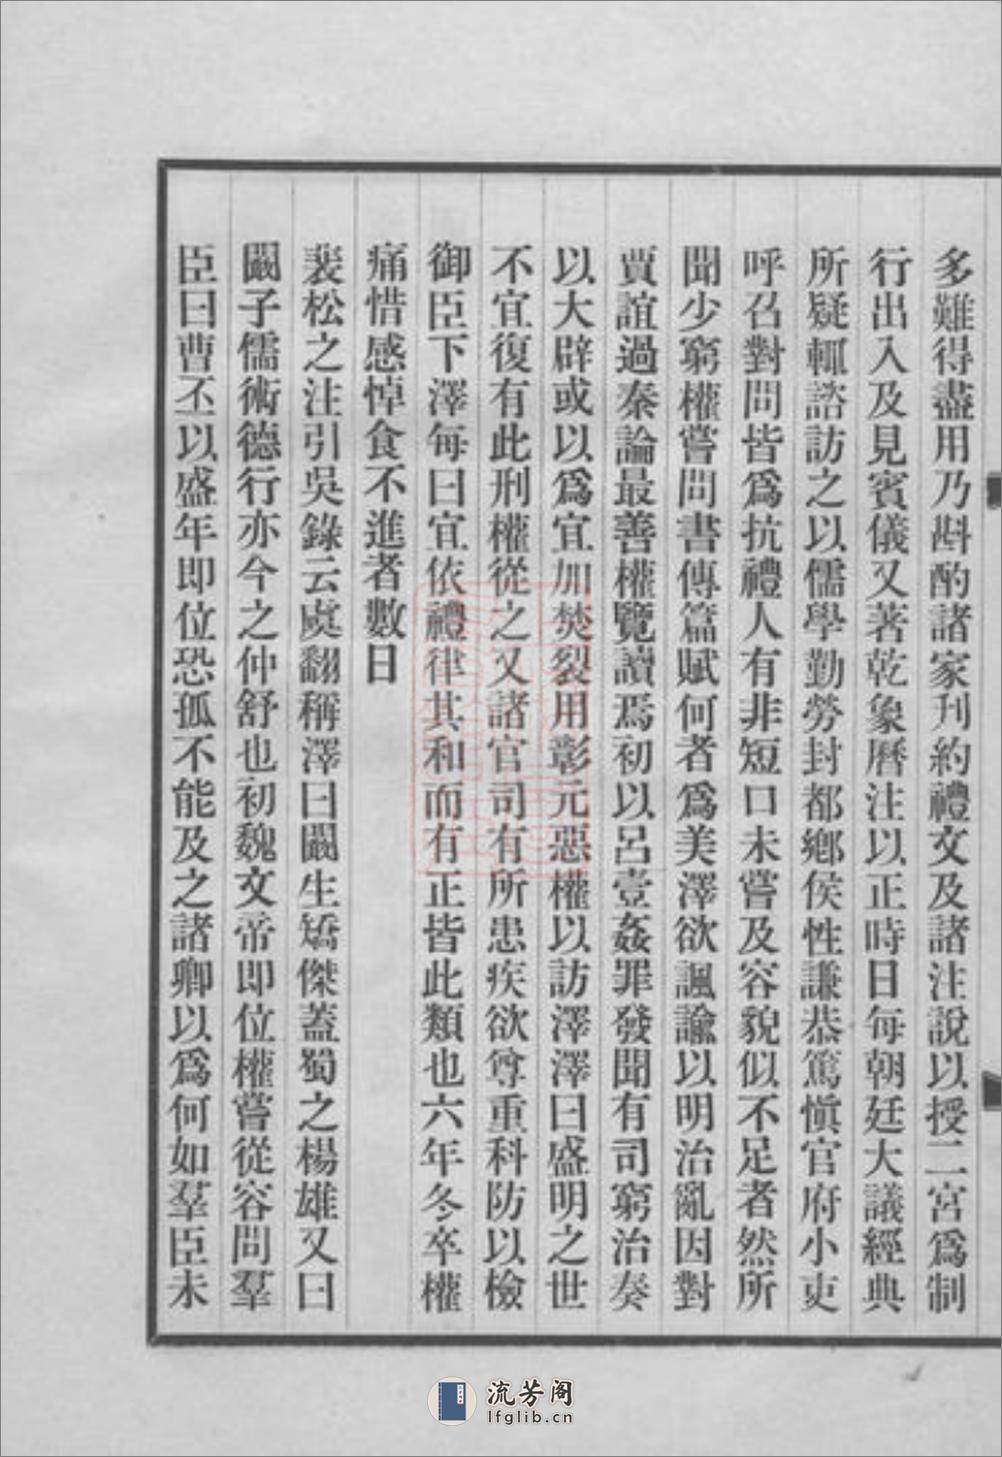 多難得盡用乃斟酌諸家刊約禮文及諸注說以授二宮爲制
行出入及見賓儀又著乾象曆注以正時日每朝廷大議經典
所疑輒諮訪之以儒學勤勞封都鄉侯性謙恭篤愼官府小吏
呼召對問皆爲抗禮人有非短口未嘗及容貌似不足者然所
聞少窮權嘗問書傳篇賦何者爲美澤欲諷諭以明治亂因對
賈誼過秦論最善權覽讀焉初以呂壹姦罪發聞有司窮治奏
以大辟或以爲宜加焚裂用彰元惡權以訪澤澤曰盛明之世
不宜復有此刑權從之又諸官司有所患疾欲尊重科防以檢
御臣下澤每曰宜依禮律其和而有正皆此類也六年冬卒權
痛惜感悼食不進者數日
裴松之注引吳錄云虞翻稱澤曰闞生矯傑蓋蜀之楊雄又曰
闞子儒術德行亦今之仲舒也初魏文帝即位權嘗從容問羣
臣曰曹丕以盛年即位恐孤不能及之諸卿以爲何如羣臣未
流芳阁
lfglib.cn